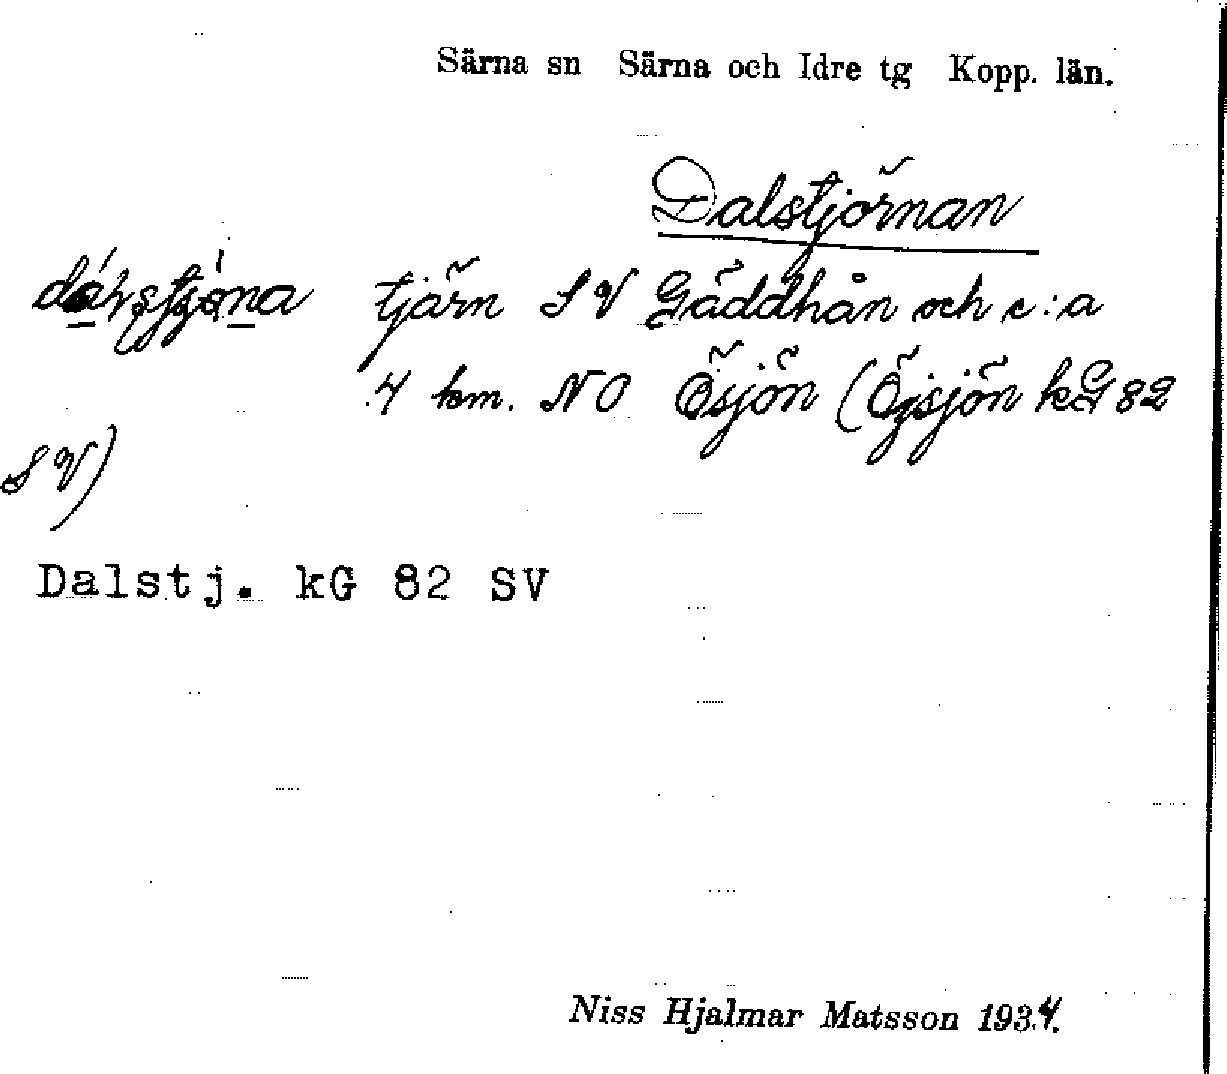 Särna sn Särna och Idre tg Kopp. län.
Dalstjörnan
tjärn SV Gäddhån och c:a
4 km. NO Ösjön (Öjsjön kG 82
SV)
Dalstj. kG 82 SV
Niss Hjalmar Matsson 1934.